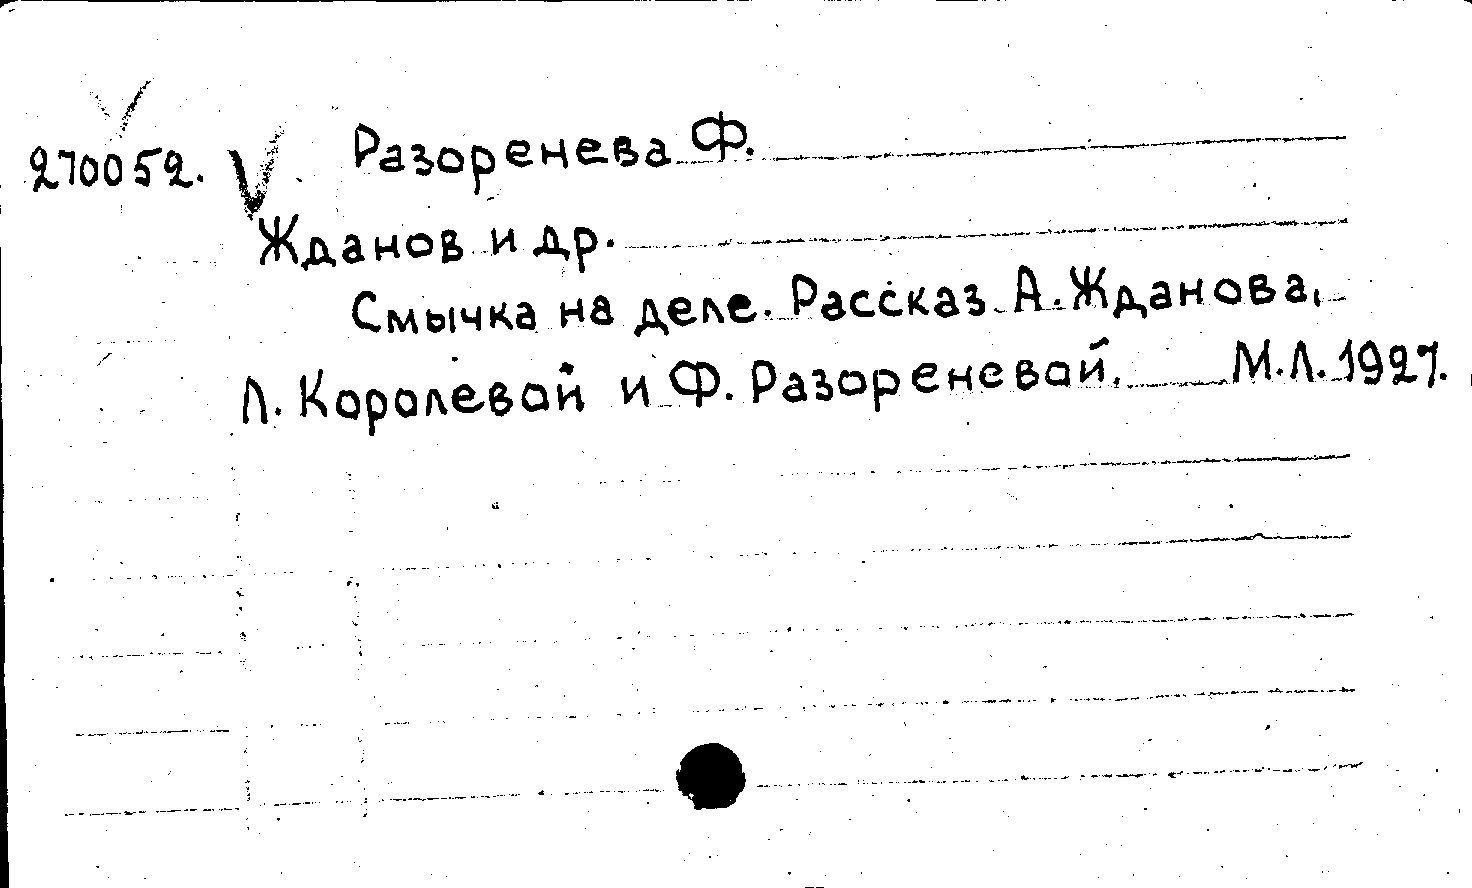 270052. Разоренева Ф.
Жданов и др.
Смычка на деле. Рассказ А. Жданова,
Л. Королевой и Ф. Разореневой. М.Л. 1927.